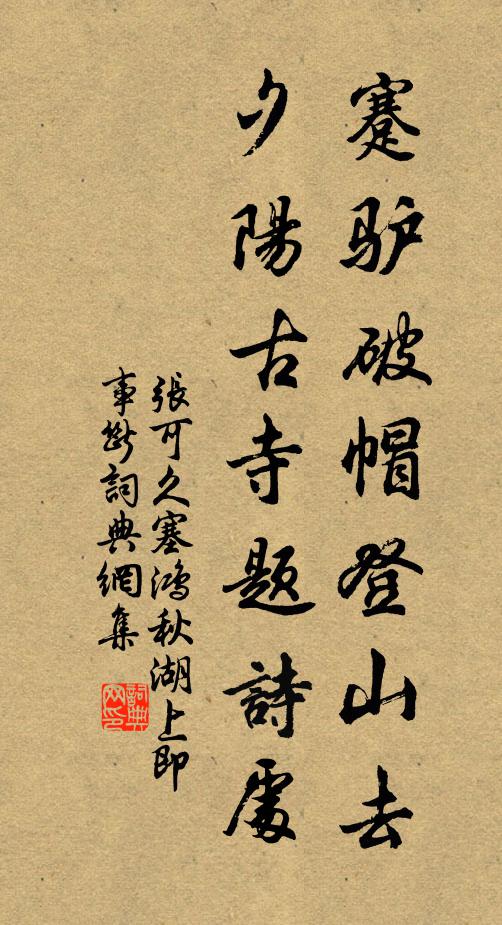 蹇驴破帽登山去
夕陽古寺題詩處
張可久塞鴻秋湖上即
事斷詞典網集
詞典
网印